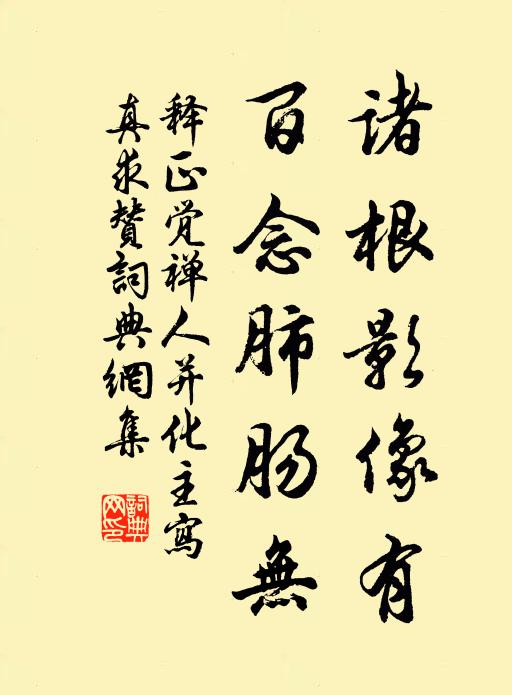 诸根影像有
百念肺肠無
释正觉禅人并化主寫
真求贊詞典網集
詞典網印